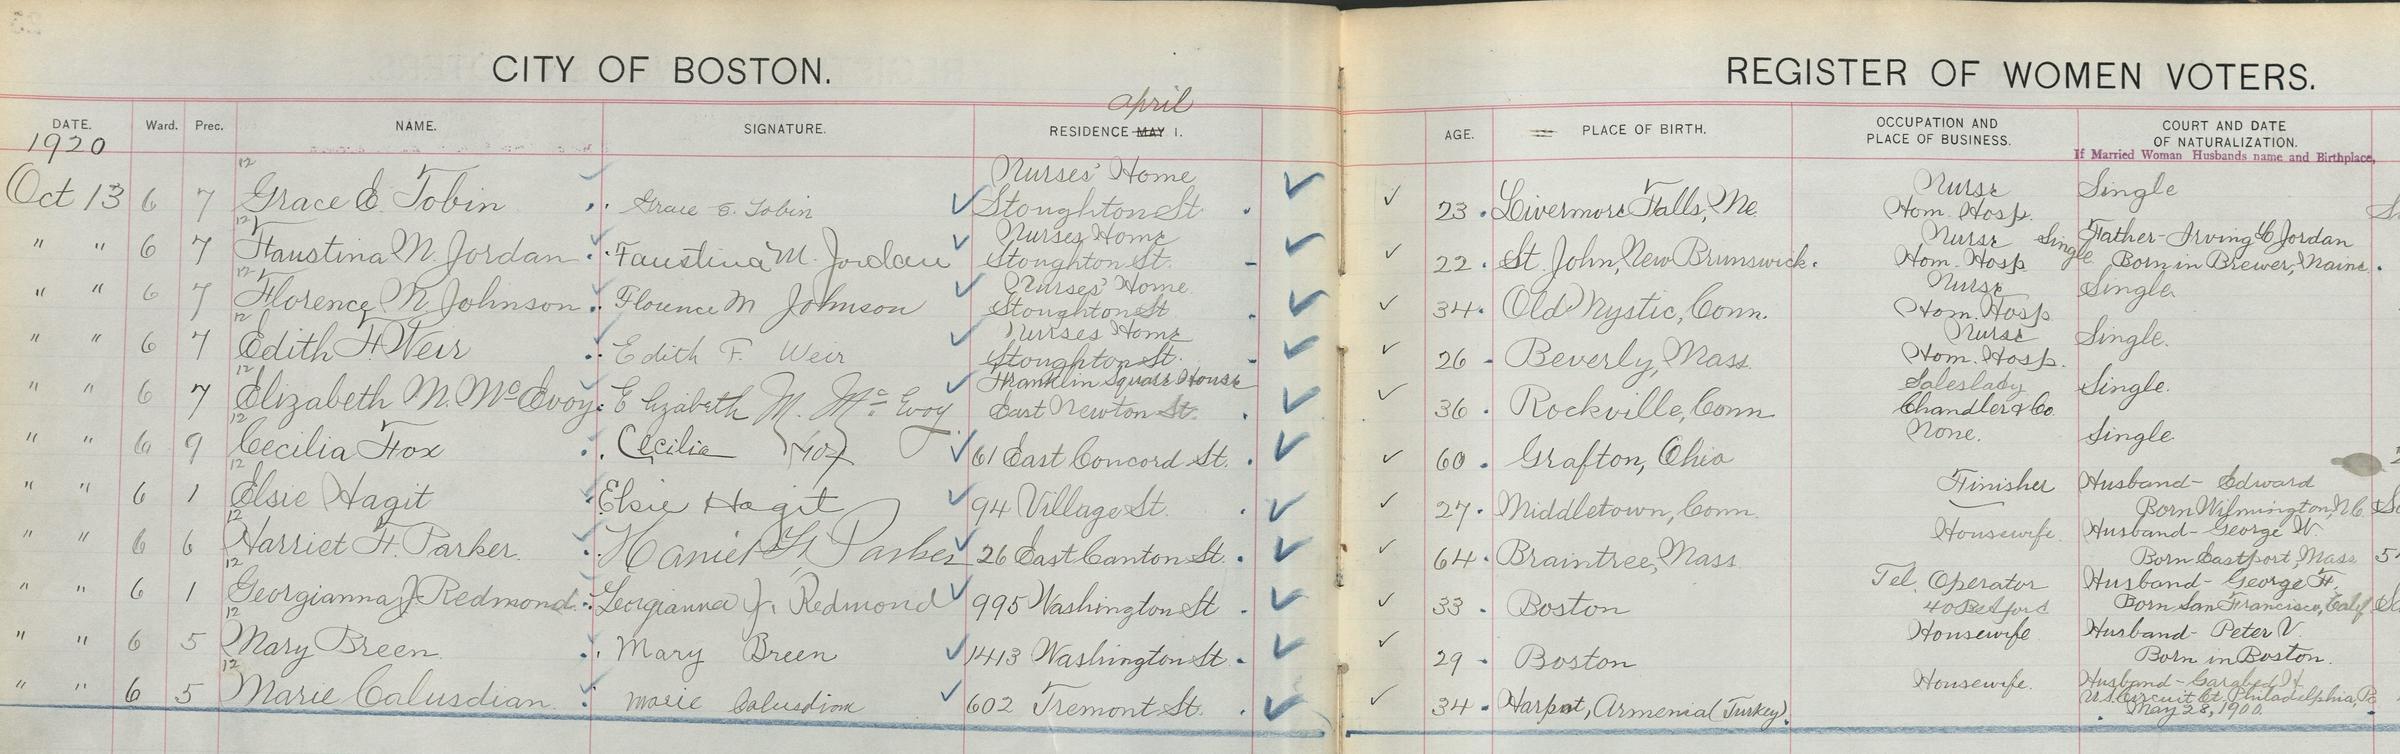 CITY OF BOSTON. REGISTER OF WOMEN VOTERS.
april
DATE. Ward. Prec. NAME. SIGNATURE. RESIDENCE MAY 1. AGE. PLACE OF BIRTH. OCCUPATION AND PLACE OF BUSINESS. COURT AND DATE OF NATURALIZATION.
If Married Woman Husbands name and Birthplace,
1920
12
Nurses' Home Nurse Single
Oct 13 6 7 Grace E. Tobin Grace E. Tobin Stoughton St. 23. Livermore Falls, Me. Hom. Hosp.
12
Nurses Home Nurse Single Father - Irving C Jordan
" " 6 7 Faustina M. Jordan Faustina M. Jordan Stoughton St. 22. St. John, New Brunswick. Hom. Hosp Born in Brewer, Maine.
12
Nurses' Home Nurse Single
" " 6 7 Florence M. Johnson Florence M Johnson Stoughton St 34. Old Mystic, Conn. Hom. Hosp
12
Nurses Home Nurse Single.
" " 6 7 Edith F. Weir Edith F. Weir Stoughton St. 26. Beverly, Mass. Hom. Hosp.
12
Franklin Square House Saleslady Single.
" " 6 7 Elizabeth M. McEvoy Elizabeth M. McEvoy East Newton St. 36. Rockville, Conn Chandler & Co.
12
None. Single
" " 6 9 Cecilia Fox Cecilia Fox 61 East Concord St. 60. Grafton, Ohio
12
Finisher Husband - Edward
" " 6 1 Elsie Hagit Elsie Hagit 94 Village St. 27. Middletown, Conn. Born Wilmington, N.C.
12
Housewife. Husband - George W.
" " 6 6 Harriet F. Parker. Harriet F. Parker 26 East Canton St. 64. Braintree, Mass Born Eastport Mass
12
Tel. Operator Husband - George F.
" " 6 1 Georgianna J. Redmond. Georgianna J. Redmond 995 Washington St 33. Boston 40 Bedford Born San Francisco, Calif
12
Housewife Husband - Peter V.
" " 6 5 Mary Breen. Mary Breen 1413 Washington St. 29. Boston Born in Boston.
12
Housewife. Husband - Garabed H.
" " 6 5 Marie Calusdian. Marie Calusdian 602 Tremont St. 34. Harput, Armenia (Turkey). U.S. Circuit Ct. Philadelphia, Pa
May 28, 1900.